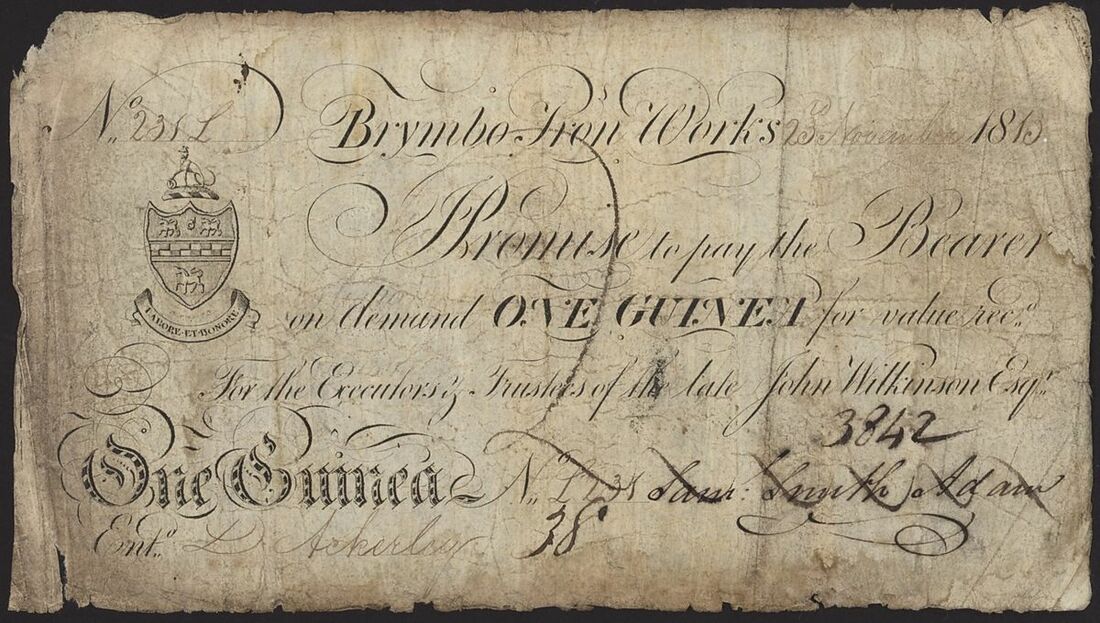 No. 231 L Brymbo Iron Works 23 November 1813
I Promise to pay the Bearer
on demand ONE GUINEA for value rec.d
LABORE·ET·HONORE
For the Executors & Trustees of the late John Wilkinson Esqr.
3842
One Guinea No. L 231 Saml. Smith Adam
38
Ent.d D Ackerley